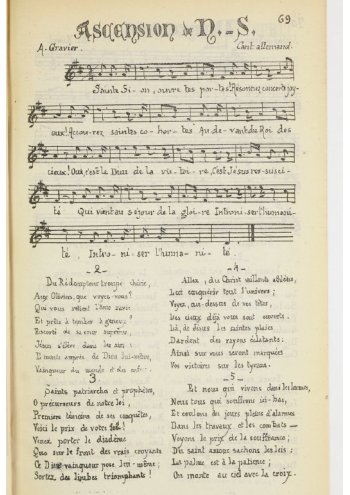 69
Ascension de N.-S.
A. Gravier. Cant. allemand.
Sainte Si-on, ouvre tes por-tes, Résonnez concerts joy-
eux! Accou-rez saintes co-hor-tes Au de-vant du Roi des
cieux! Oui, c'est le Dieu de la vic-toi-re, C'est Jésus res-susci-
té Qui vient au séjour de la gloi-re Introni-ser l'humani-
té, Intro-ni-ser l'huma-ni-té.
-2-
Du Rédempteur troupe chérie,
Aux Oliviers, que voyez-vous?
Qui vous retient l'âme ravie
Et prêts à tomber à genoux?
Escorté de sa cour
Jésus s'élève dans les airs:
Il monte auprès de Dieu lui-même,
Vainqueur du monde et des enfers.
3
Saints patriarches et prophètes,
O précurseurs de notre loi,
Premiers témoins de ses conquêtes,
Voici le prix de votre foi!
Venez porter le diadème
Qui sur le front des vrais croyants
Ce Dieu vainqueur pose lui-même;
Sortez des limbes triomphants!
-4-
Allez, du Christ vaillants athlètes,
Luit conquérir tout l'univers;
Voyez, au-dessus de vos têtes,
Les cieux déjà vous sont ouverts.
Là, de Jésus les saintes plaies
Dardent des rayons éclatants:
Ainsi vous seront marquées
Vos victoires sur les tyrans.
-5-
Et nous qui vivons dans les larmes,
Nous tous qui souffrons ici-bas,
Et coulons des jours pleins d'alarmes
Dans les travaux et les combats —
Voyons le prix de la souffrance;
Du saint saxons sachons les lois:
La palme est à la patience;
On monte au ciel avec la croix.